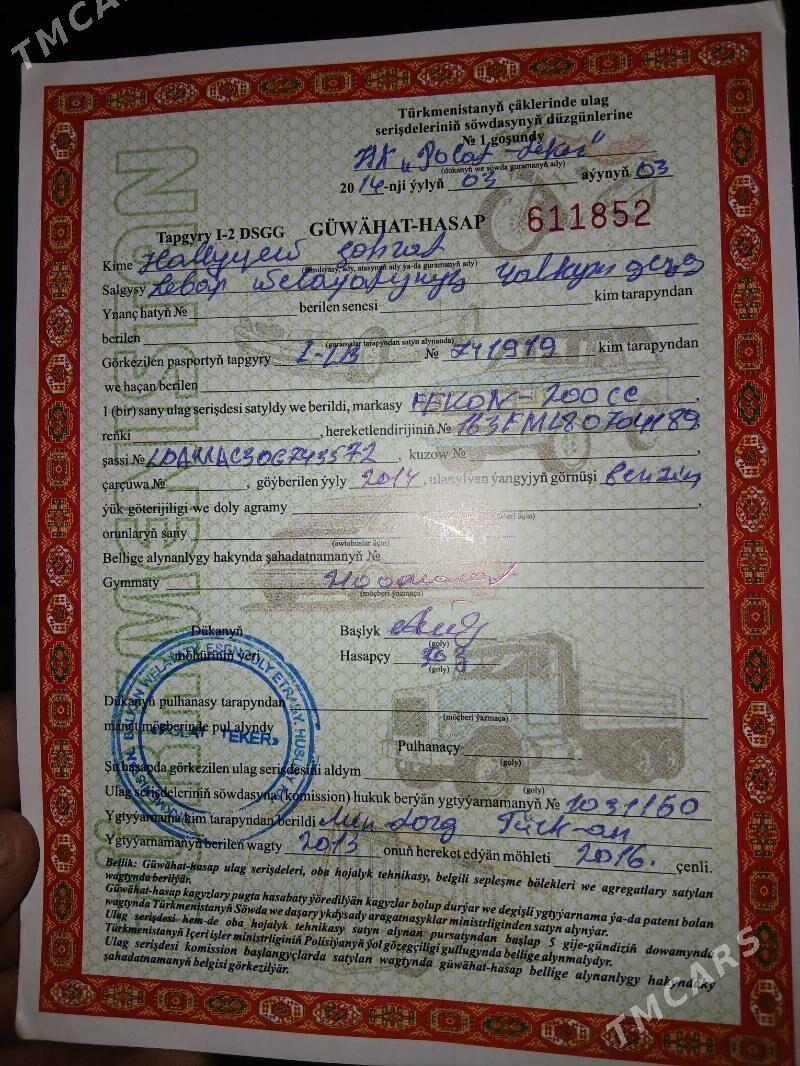 TMCARS
Türkmenistanyň çäklerinde ulag
serişdeleriniň söwdasynyň düzgünlerine
№ 1 goşundy
HK „Polat-teker"
(dükanyň we söwda guramanyň ady)
2014-nji ýylyň 03 aýynyň 03
Tapgyry I-2 DSGG GÜWÄHAT-HASAP 611852
Kime
(familiýasy, ady, atasynyň ady ýa-da guramanyň ady)
Salgysy Lebap welaýatynyň
Ynanç hatyň № berilen senesi kim tarapyndan
berilen
(guramalar tarapyndan satyn alynanda)
Görkezilen pasportyň tapgyry I-LB № 241919 kim tarapyndan
we haçan berilen
1 (bir) sany ulag serişdesi satyldy we berildi, markasy FEKON-200CC
reňki , hereketlendirijiniň №
şassi № , kuzow № ,
çarçuwa № , göýberilen ýyly 2014, ulanylýan ýangyjyň görnüşi Benzin
ýük göterijiligi we doly agramy ,
orunlaryň sany
(awtobuslar üçin)
Bellige alynanlygy hakynda şahadatnamanyň №
Gymmaty
(möçberi ýazmaça)
Dükanyň Başlyk
(goly)
möhüriniň ýeri Hasapçy
(goly)
Dükanyň pulhanasy tarapyndan
(möçberi ýazmaça)
manat möçberinde pul alyndy
«POLAT TEKER»
Pulhanaçy
(goly)
Şu hasapda görkezilen ulag serişdesini aldym
(goly)
Ulag serişdeleriniň söwdasyna (komission) hukuk berýän ygtyýarnamanyň № 1031150
Ygtyýarnama kim tarapyndan berildi
Ygtyýarnamanyň berilen wagty 2013 onuň hereket edýän möhleti 2016. çenli.
Bellik: Güwähat-hasap ulag serişdeleri, oba hojalyk tehnikasy, belgili sepleşme bölekleri we agregatlary satylan
wagtynda berilýär.
Güwähat-hasap kagyzlary pugta hasabaty ýöredilýän kagyzlar bolup durýar we degişli ygtyýarnama ýa-da patent bolan
wagtynda Türkmenistanyň Söwda we daşary ykdysady aragatnaşyklar ministrliginden satyn alynýar.
Ulag serişdesi hem-de oba hojalyk tehnikasy satyn alynan pursatyndan başlap 5 gije-gündiziň dowamynda
Türkmenistanyň Içeri işler ministrliginiň Polisiýanyň ýol gözegçiligi gullugynda bellige alynmalydyr.
Ulag serişdesi komission başlangyçlarda satylan wagtynda güwähat-hasap bellige alynanlygy hakyndaky
şahadatnamanyň belgisi görkezilýär.
TMCARS